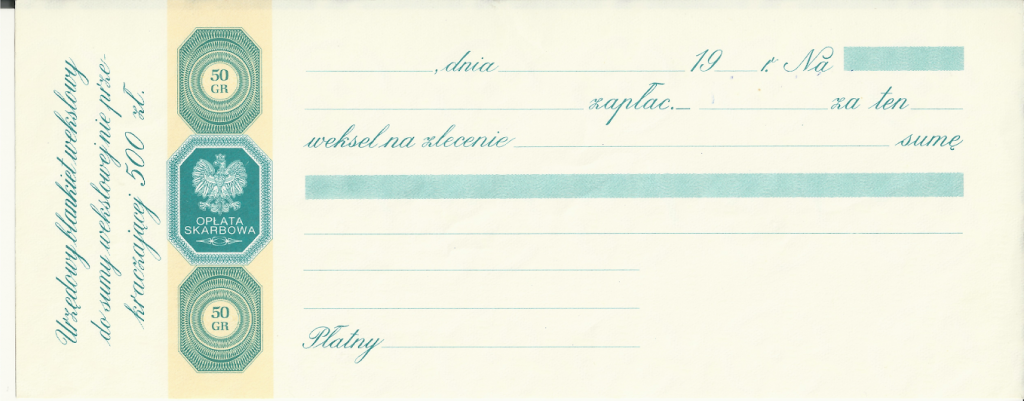 Urzędowy blankiet wekslowy
do sumy wekslowej nie prze-
kraczającej 500 zł.
50
GR
OPŁATA
SKARBOWA
50
GR
, dnia 19 r. Na
zapłac. za ten
weksel na zlecenie sumę
Płatny